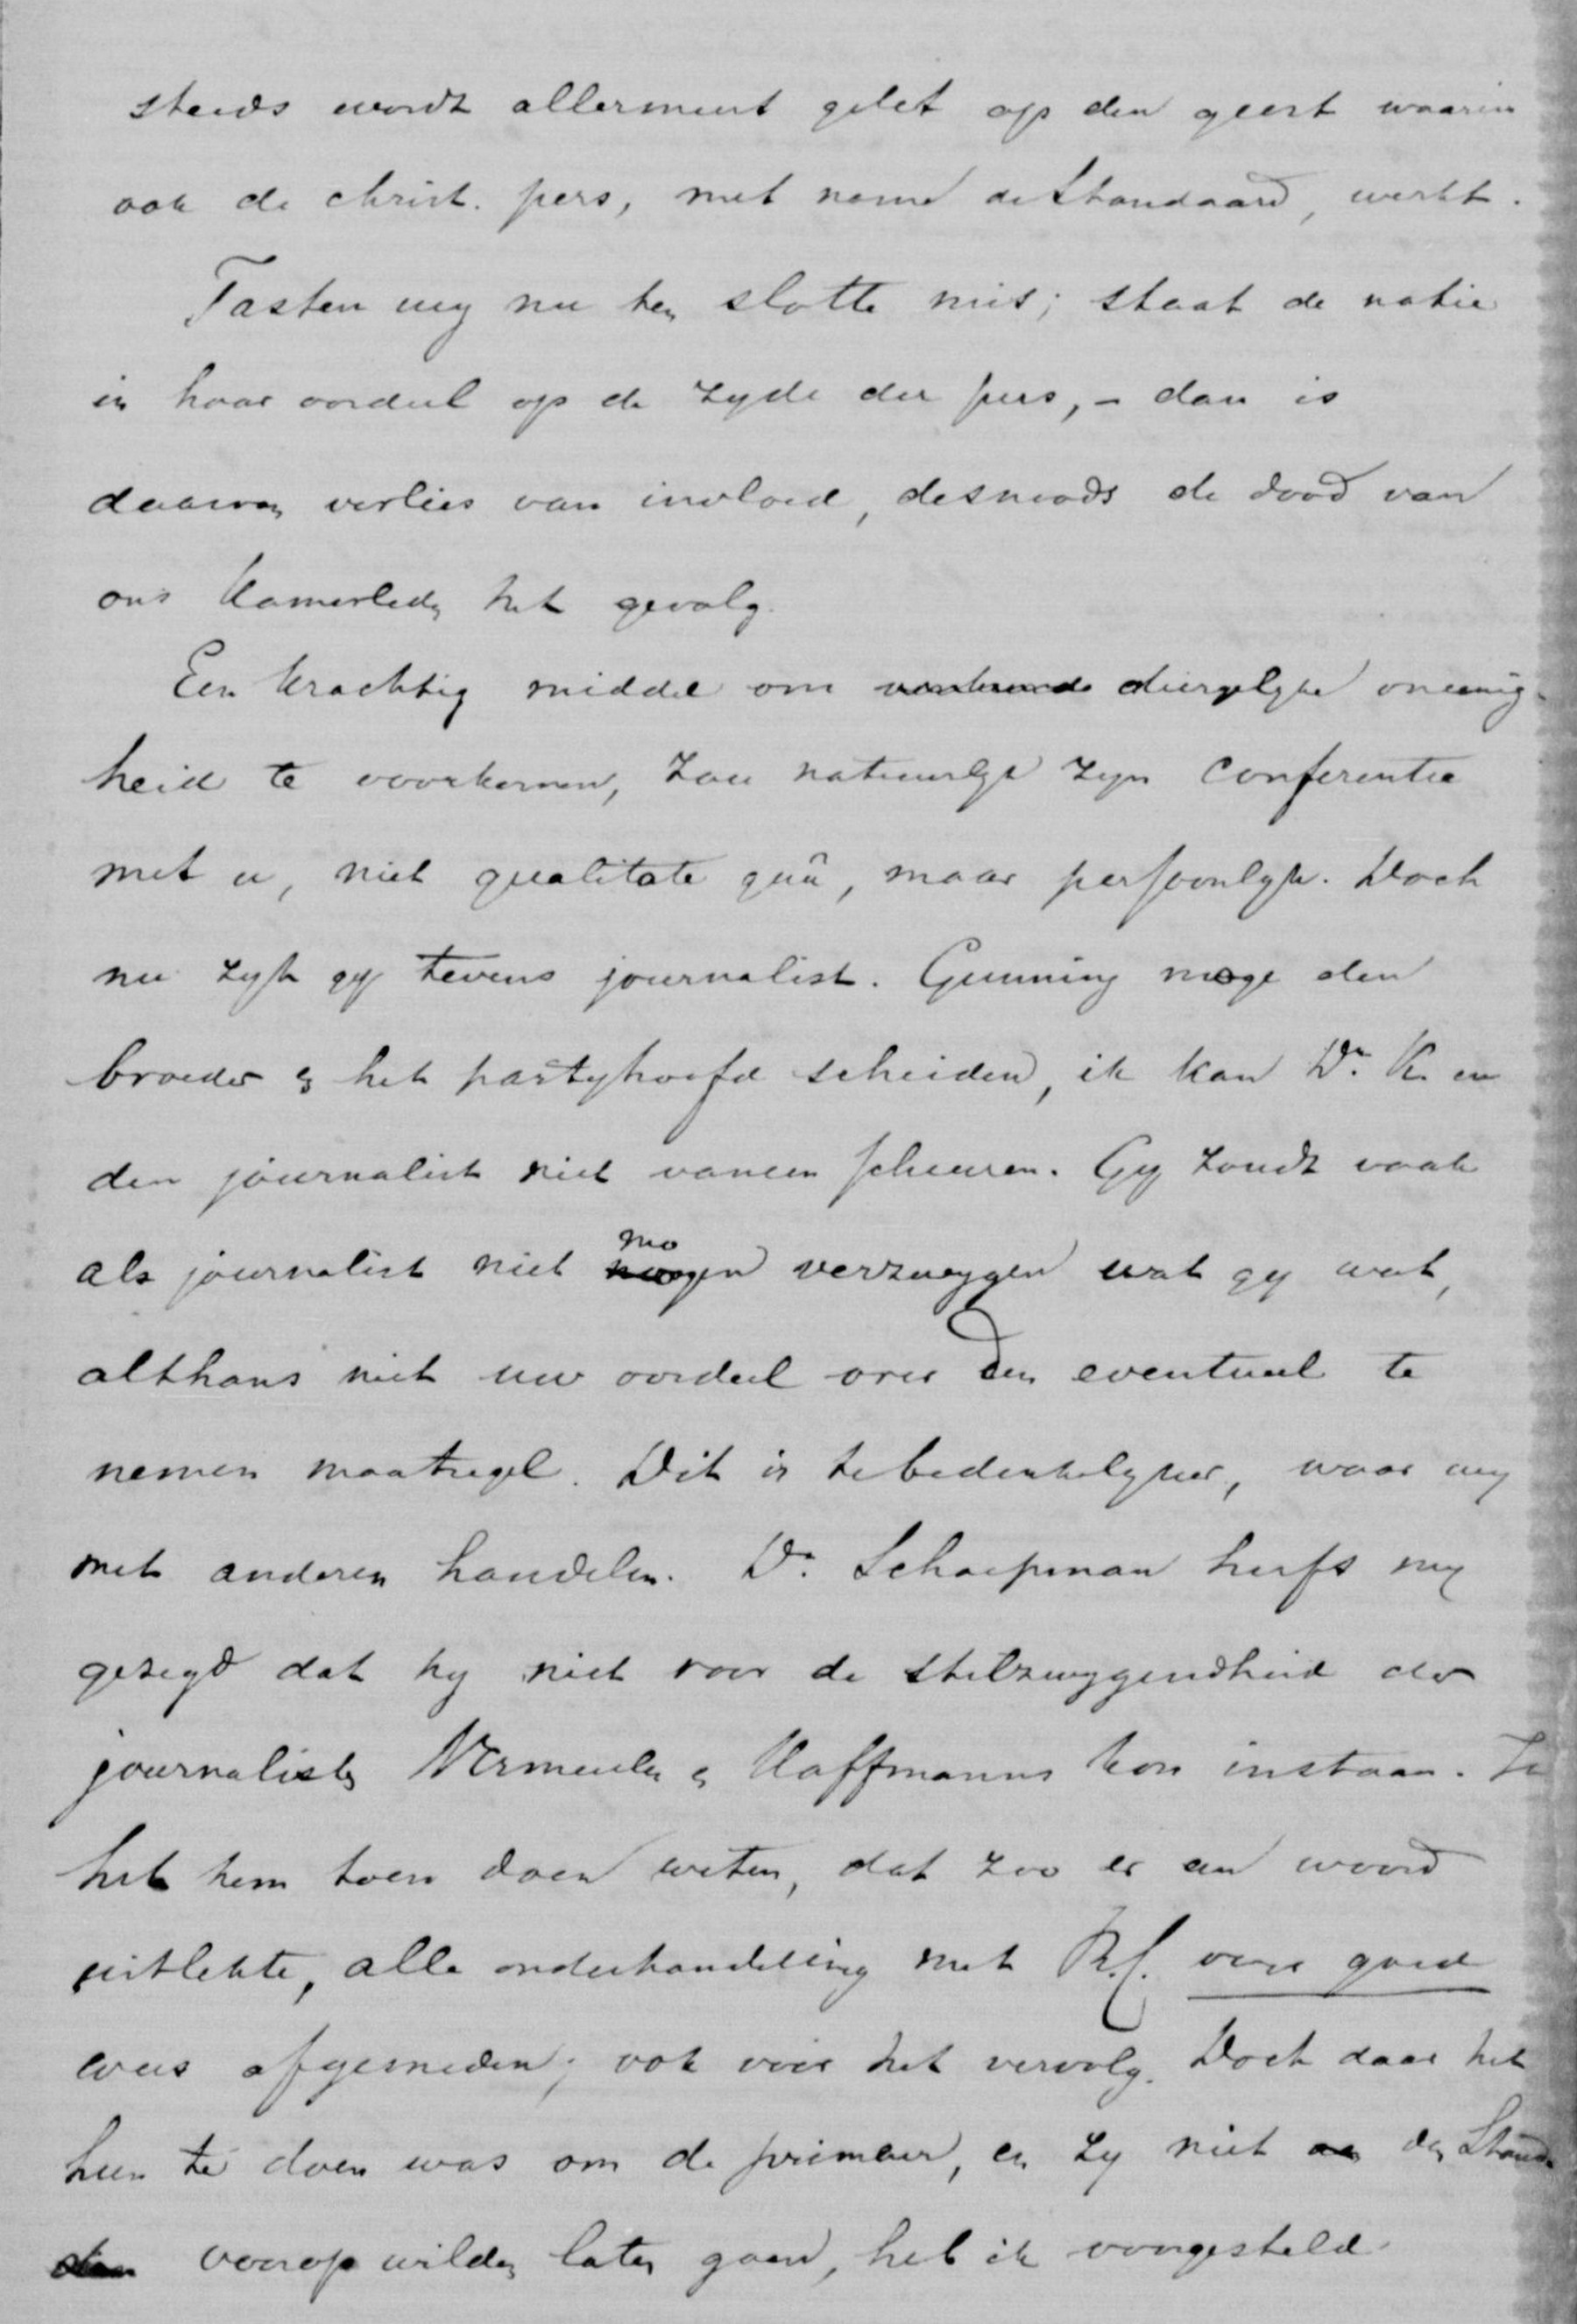 steeds wordt allermeest gelet op den geest waarin
ook de christ. pers, met name de Standaard, werkt.
Tasten wij nu ten slotte mis; staat de natie
in haar oordeel op de zyde der pers, - dan is
daarvan verlies van invloed, desnoods de dood van
ons Kamerleden het gevolg.
Een krachtig middel om diergelyke oneenig-
heid te voorkomen, zou natuurlyk zyn conferentie
met u, niet qualitate quâ, maar persoonlyk. Doch
nu zyt gy tevens journalist. Gunning moge den
broeder en het partyhoofd scheiden, ik kan Dr. K. en
den journalist niet vaneen scheuren. Gy zoudt vaak
als journalist niet mogen verzwygen wat gy weet,
althans niet uw oordeel over den eventueel te
nemen maatregel. Dit is te bedenkelyker, waar wy
met anderen handelen. Dr. Schaepman heeft my
gezegd dat hy niet voor de stilzwygendheid der
journalisten Vermeulen en Haffmanns kon instaan. Ik
heb hem toen doen weten, dat zoo er een woord
uitlekte, alle onderhandeling met R.C. voor goed
was afgesneden; ook voor het vervolg. Doch daar het
hun te doen was om de primeur, en zy niet den Stand.
voorop wilden laten gaan, heb ik voorgesteld